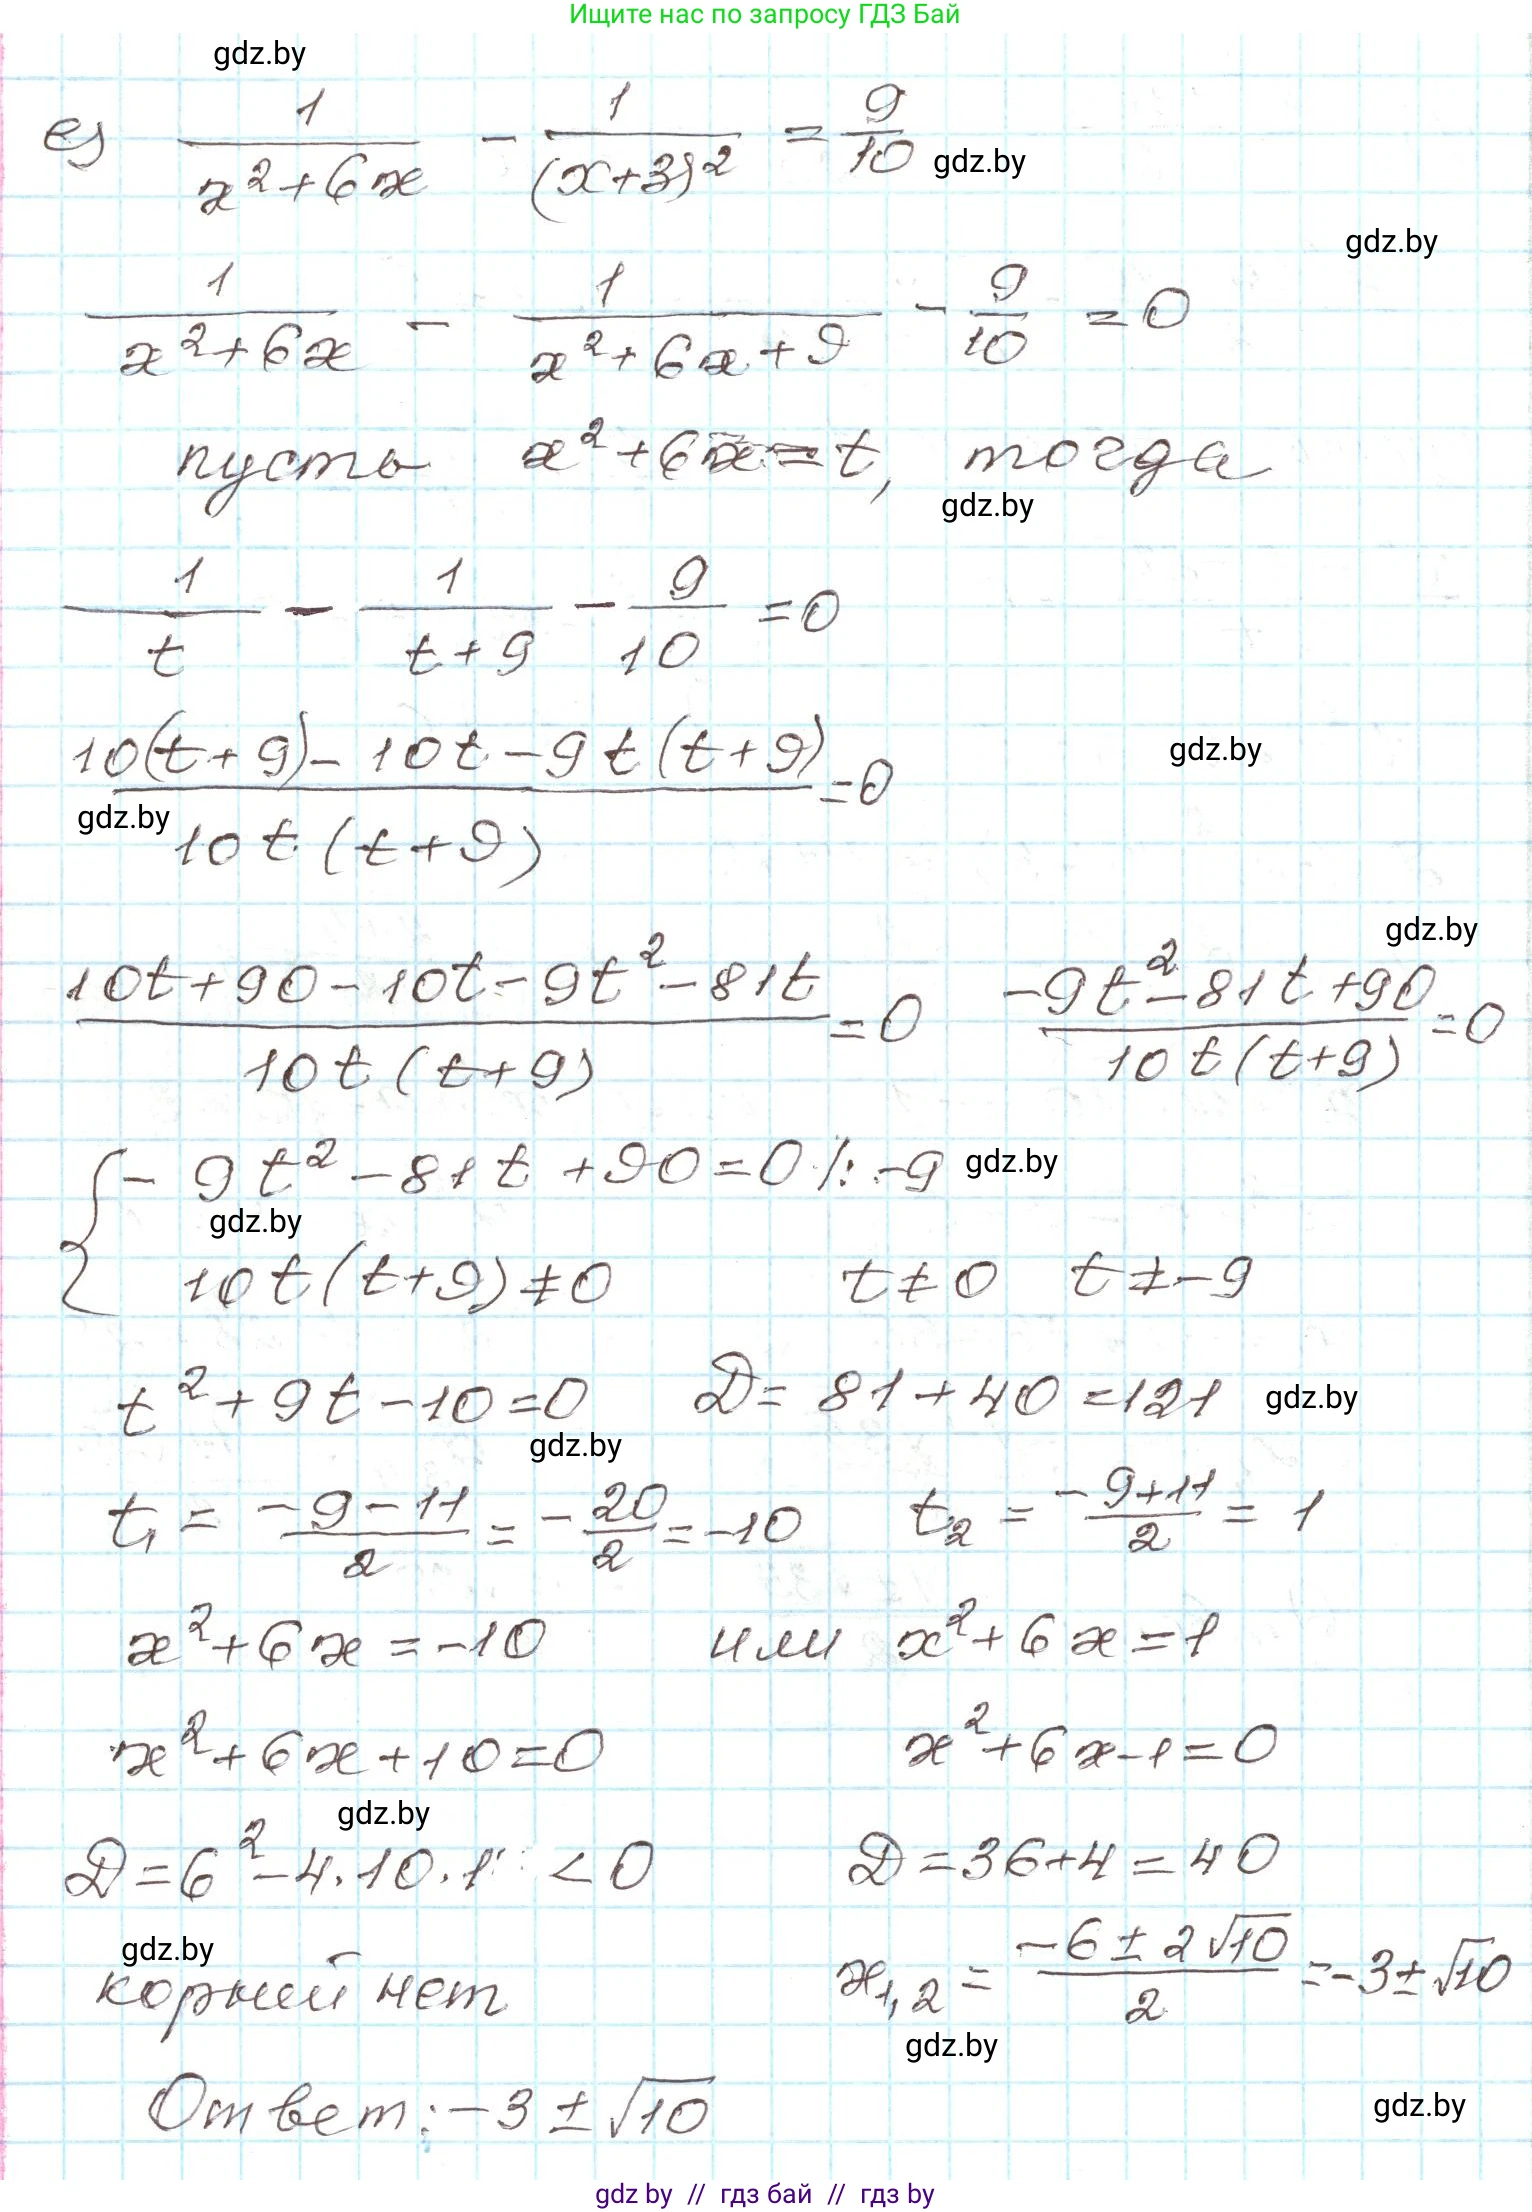 Ищите нас по запросу ГДЗ Бай
gdz.by
е) 1/(x²+6x) - 1/(x+3)² = 9/10
gdz.by
gdz.by
1/(x²+6x) - 1/(x²+6x+9) - 9/10 = 0
пусть x²+6x=t, тогда
gdz.by
1/t - 1/(t+9) - 9/10 = 0
(10(t+9)-10t-9t(t+9))/(10t(t+9)) = 0
gdz.by
gdz.by
gdz.by
(10t+90-10t-9t²-81t)/(10t(t+9)) = 0 (-9t²-81t+90)/(10t(t+9)) = 0
{-9t²-81t+90=0 |: -9
gdz.by
gdz.by
10t(t+9)≠0 t≠0 t≠-9
t²+9t-10=0 D=81+40=121
gdz.by
gdz.by
t₁ = (-9-11)/2 = -20/2 = -10 t₂ = (-9+11)/2 = 1
x²+6x=-10 или x²+6x=1
x²+6x+10=0 x²+6x-1=0
gdz.by
D=6²-4·10·1<0 D=36+4=40
gdz.by
корний нет x₁,₂ = (-6±2√10)/2 = -3±√10
gdz.by
Ответ: -3±√10
gdz.by
gdz by // гдз бай // гдз by